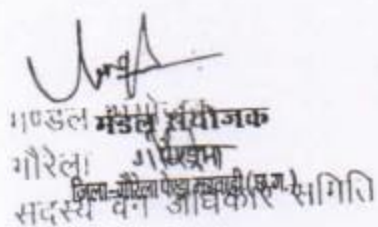 मण्डल मंडल संयोजक
गौरेला
जिला-गौरेला पेन्ड्रा मरवाही (छ.ग.)
सदस्य वन अधिकार समिति